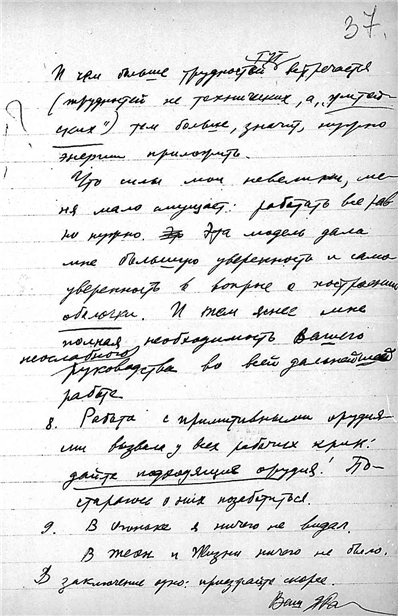 37.
тут
И чем больше трудностей встречается
(трудностей не технических, а „житей
ских") тем больше, значит, нужно
энергии приложить.
?
Что силы мои невелики, ме-
ня мало смущает: работать все рав
но нужно. Эта модель дала
мне большую уверенность и само
уверенность в вопросе о построении
оболочки. И тем яснее мне
полная необходимость Вашего
неослабного
руководства во всей дальнейшей
работе
8. Работа с примитивными орудия-
ми вызвала у всех рабочих крик:
дайте подходящие орудия! По-
стараюсь о них позаботиться.
9. В Огоньке я ничего не видал.
В и Жизни ничего не было.
В заключение одно: приезжайте скорее.
Ваш